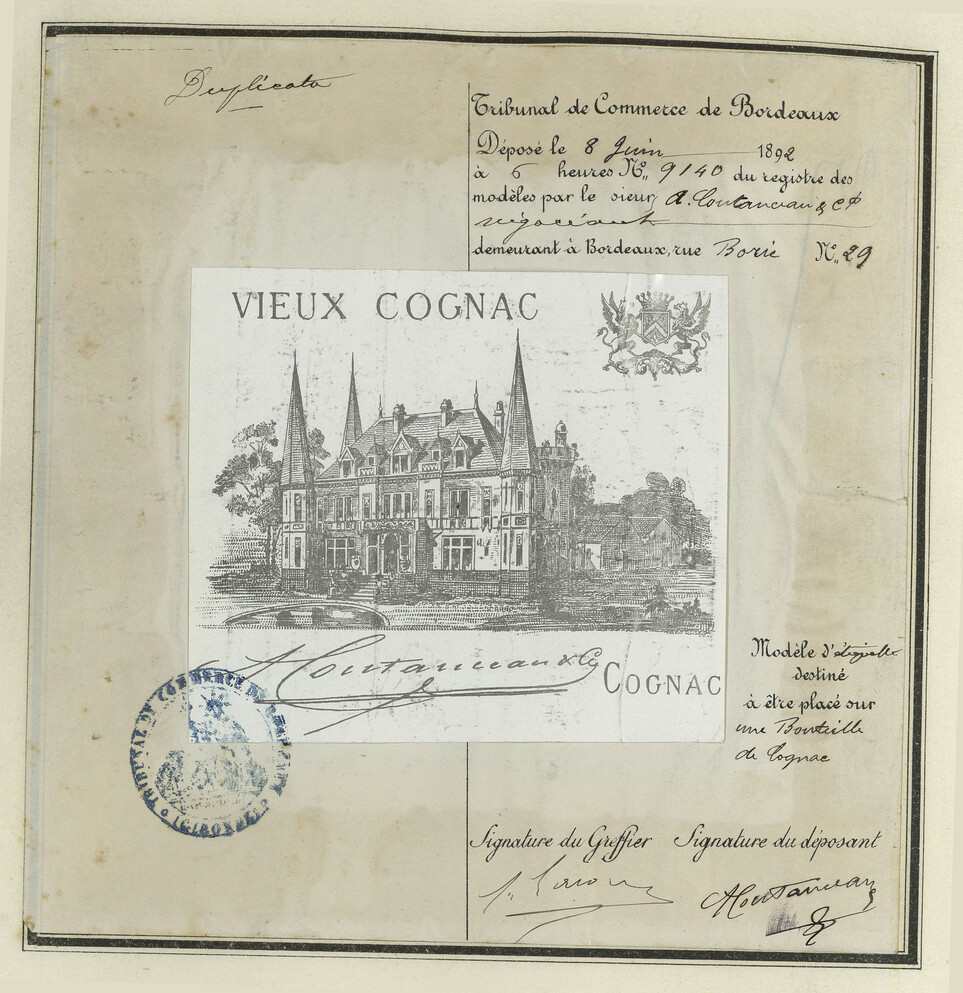 Duplicata
Tribunal de Commerce de Bordeaux
Déposé le 8 Juin 1892
à 6 heures No. 9140 du registre des
modèles par le sieur A. Coutanceau & Cie
négociant
demeurant à Bordeaux, rue Borie No. 29
VIEUX COGNAC
A Coutanceau & Cie
COGNAC
TRIBUNAL DE COMMERCE DE BORDEAUX
(GIRONDE)
Modèle d'étiquette
destiné
à être placé sur
une Bouteille
de Cognac
Signature du Greffier Signature du déposant
A Coutanceau